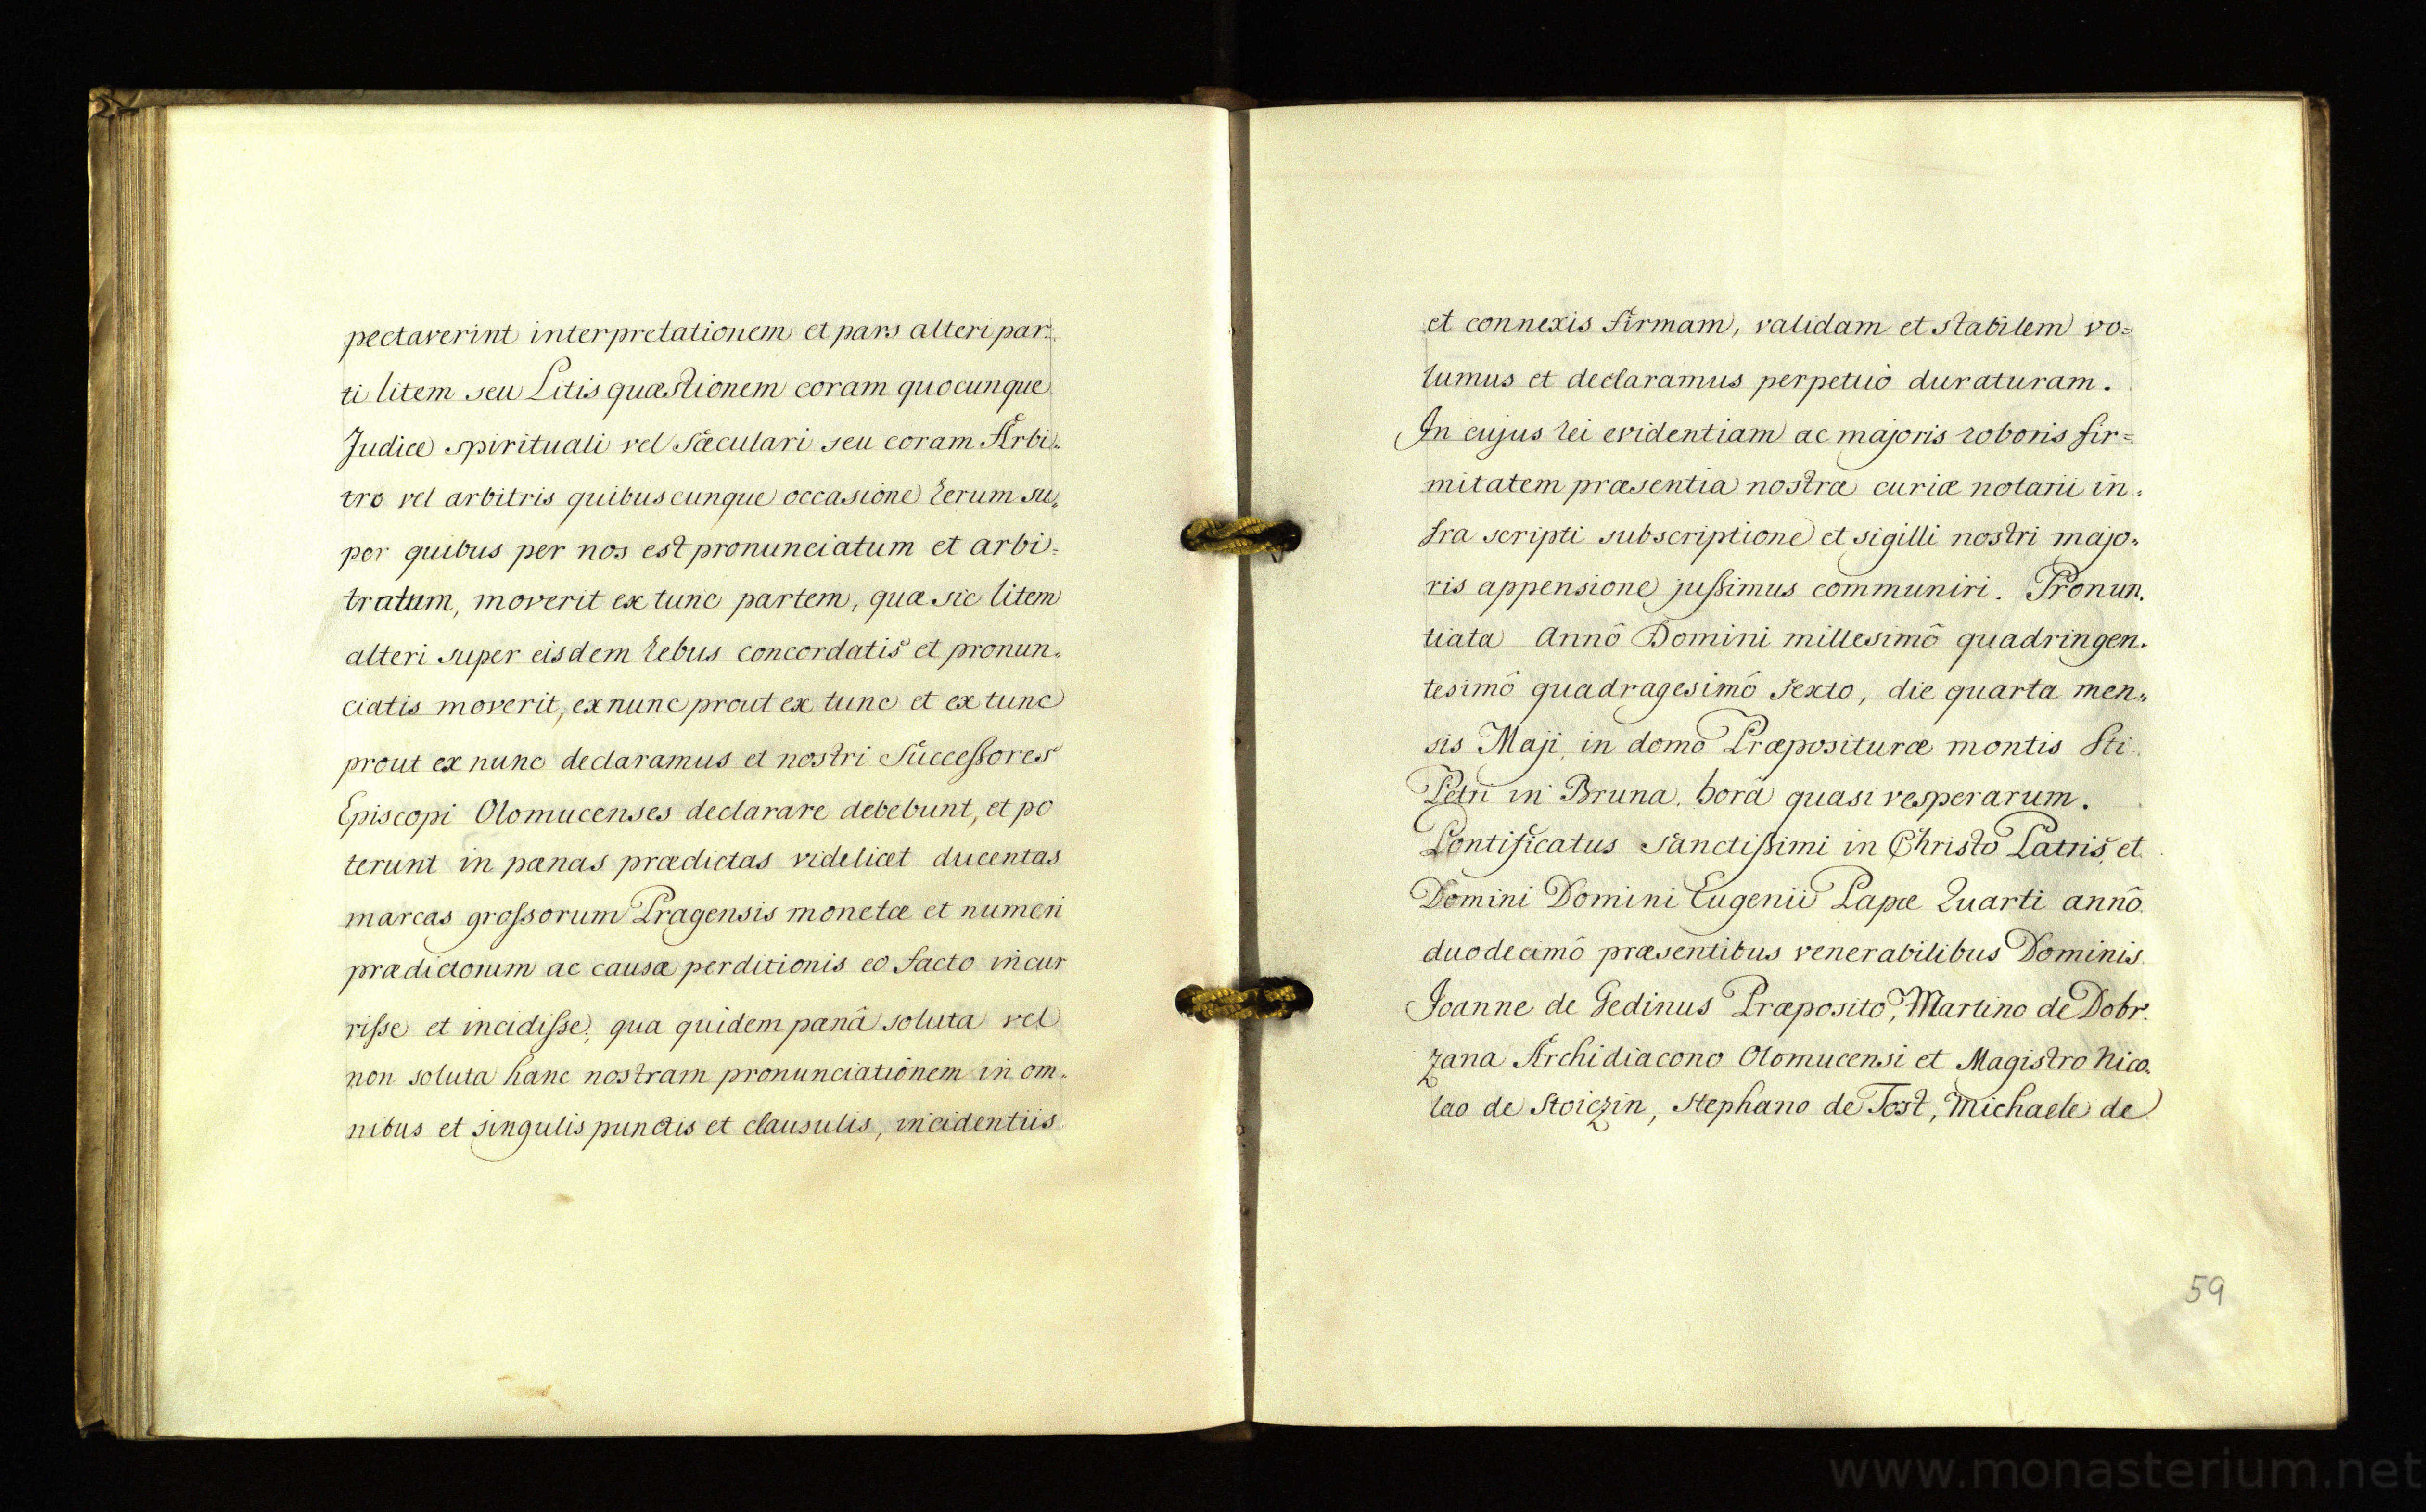 pectaverint interpretationem et pars alteri par-
ti litem seu Litis quæstionem coram quocunque
Judice spirituali vel sæculari seu coram Arbi-
tro vel arbitris quibuscunque occasione rerum su-
per quibus per nos est pronunciatum et arbi-
tratum, moverit ex tunc partem, quæ sic litem
alteri super eisdem rebus concordatis et pronun-
ciatis moverit, ex nunc prout ex tunc et ex tunc
prout ex nunc declaramus et nostri Successores
Episcopi Olomucenses declarare debebunt, et po
terunt in pœnas prædictas videlicet ducentas
marcas grossorum Pragensis monetæ et numeri
prædictorum ac causæ perditionis eo facto incur
risse et incidisse, qua quidem pœnâ soluta vel
non soluta hanc nostram pronunciationem in om-
nibus et singulis punctis et clausulis, incidentiis
et connexis firmam, validam et stabilem vo=
lumus et declaramus perpetuò duraturam.
In cujus rei evidentiam ac majoris roboris fir=
mitatem præsentia nostræ curiæ notarii in-
fra scripti subscriptione et sigilli nostri majo-
ris appensione jussimus communiri. Pronun-
tiata Annô Domini millesimô quadringen-
tesimô quadragesimô sexto, die quarta men-
sis Maji, in domo Præpositura montis Sti
Petri in Bruna, horâ quasi vesperarum.
Pontificatus sanctissimi in Christo Patris, et
Domini Domini Eugenii Papæ Quarti annô
duodecimô præsentibus venerabilibus Dominis
Joanne de Gedinus Præposito, Martino de Dobr-
zana Archidiacono Olomucensi et Magistro Nico-
lao de Stoiczin, Stephano de Tost, Michaele de
59
www.monasterium.net